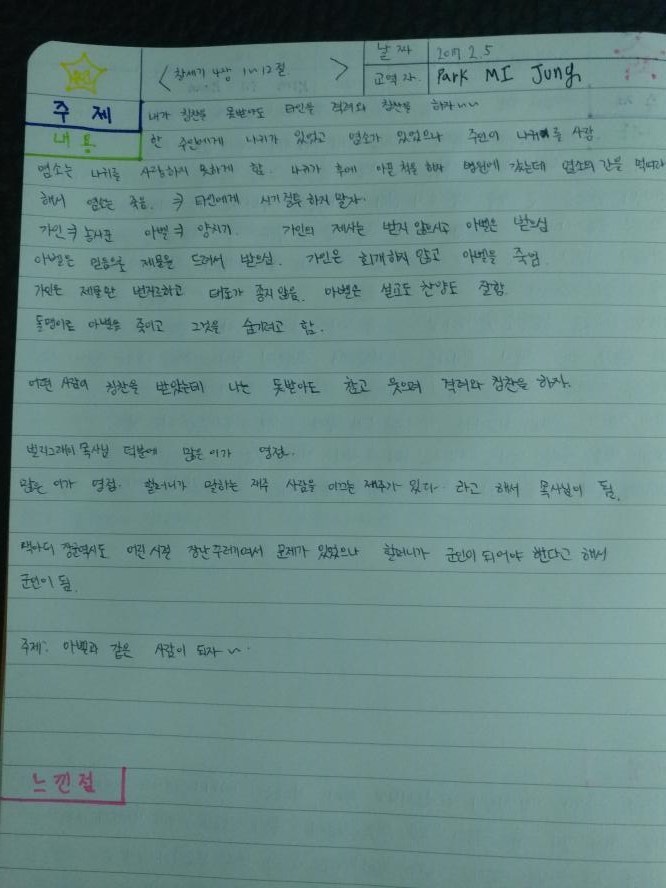 날짜 2017. 2. 5
< 창세기 4장 1~12절 >
교역자. Park MI Jung
주제 내가 칭찬을 못받아도 타인을 격려와 칭찬을 하자~~
내용 한 주인에게 나귀가 있었고 염소가 있었으나 주인이 나귀를 사랑
염소는 나귀를 사랑하지 못하게 함. 나귀가 후에 아픈 척을 해서 병원에 갔는데 염소의 간을 먹따라
해서 염소는 죽음. => 타인에게 시기질투 하지 말자.
가인 => 농사꾼 아벨 => 양치기. 가인의 제사는 받지 않으시고 아벨은 받으심
아벨은 믿음으로 제물을 드려서 받으심. 가인은 회개하지 않고 아벨을 죽임
가인은 제물만 번지르하고 태도가 좋지 않음. 아벨은 설교도 찬양도 잘함
돌멩이로 아벨을 죽이고 그것을 숨기려고 함.
어떤 사람이 칭찬을 받았는데 나는 못받아도 참고 웃으며 격려와 칭찬을 하자.
빌리그레이 목사님 덕분에 많은 이가 영접.
많은 이가 영접. 할머니가 말하는 재주 사람을 이끄는 재주가 있다. 라고 해서 목사님이 됨.
맥아더 장군역시도 어린 시절 장난꾸러기여서 문제가 있었으나 할머니가 군인이 되어야 한다고 해서
군인이 됨.
주제: 아벨과 같은 사람이 되자~.
느낀점